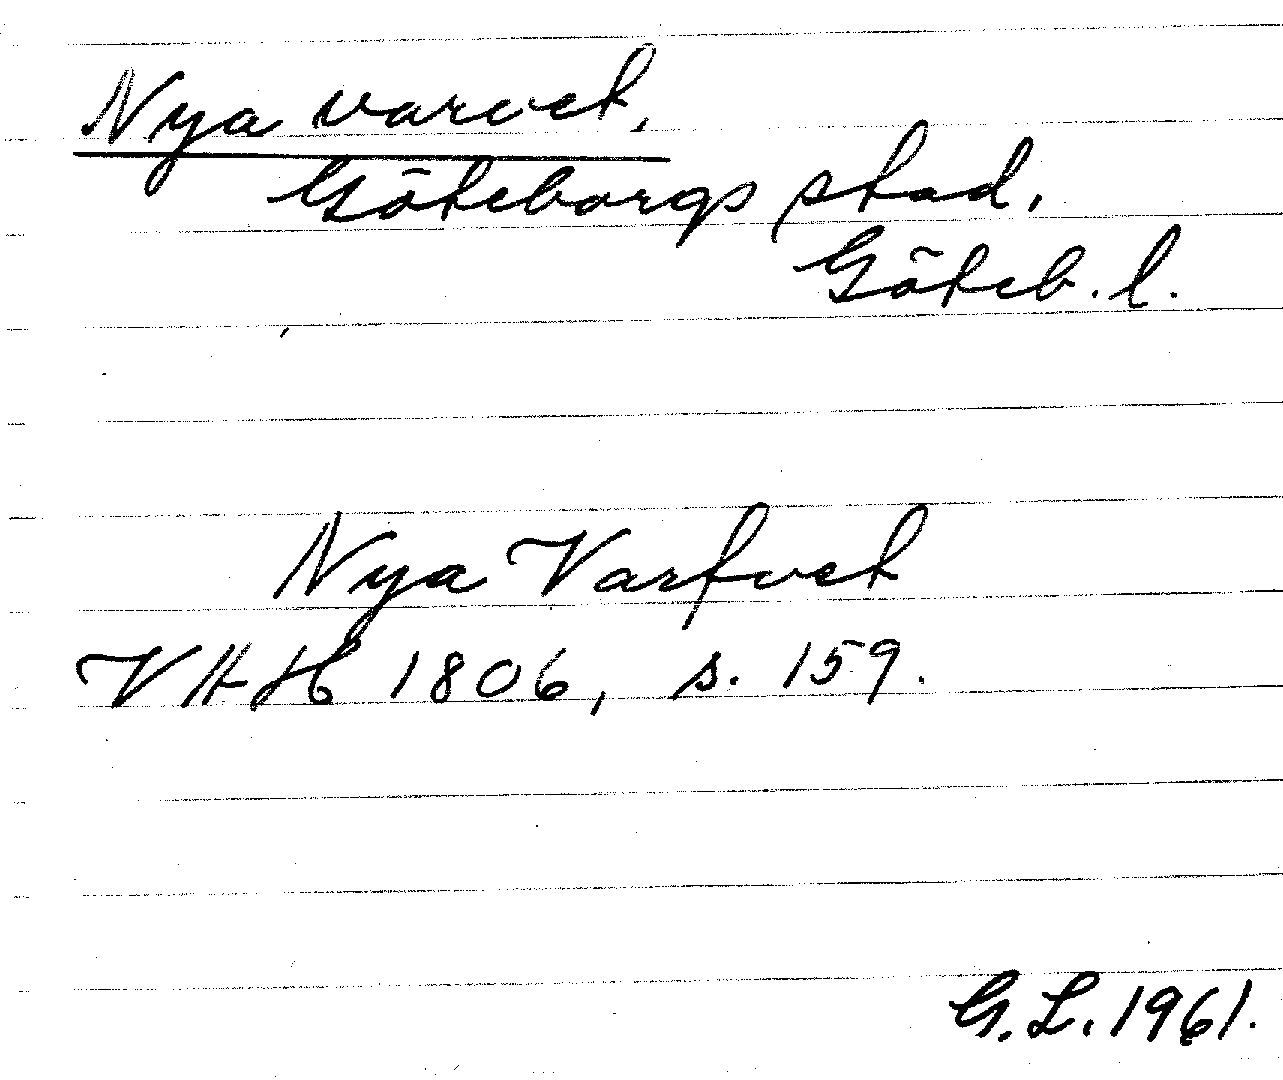 Nya varvet,
Göteborgs stad.
Göteb. l.
Nya Varfvet
VHH 1806, s. 159.
G. L. 1961.